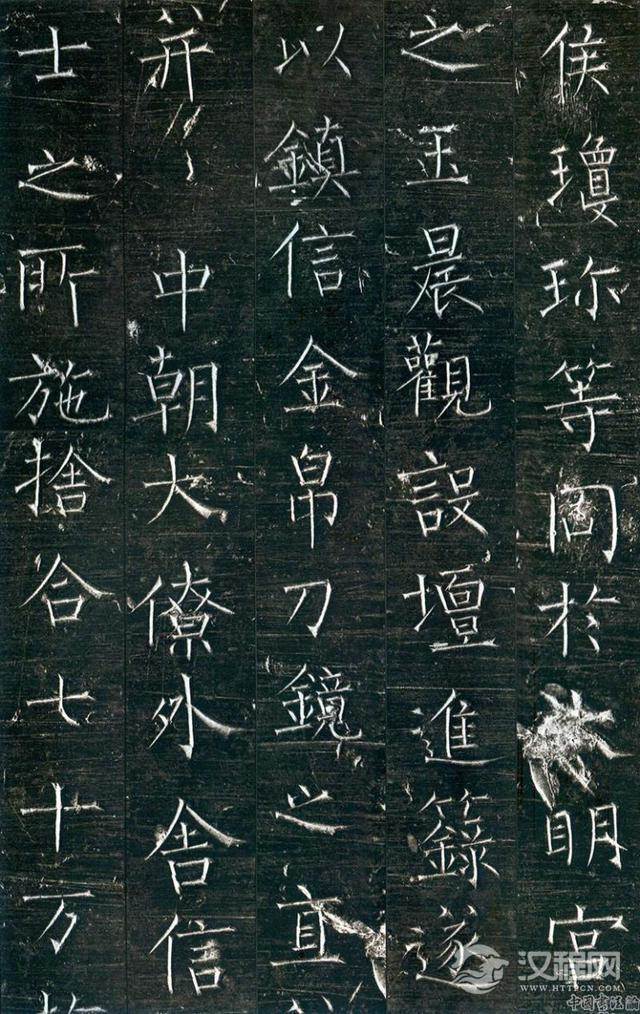 侯瓊珍等同於大明宫
之玉晨觀設壇進籙遂
以鎮信金帛刀鏡之直
并中朝大僚外舍信
士之所施捨合七十万
汉程网
WWW.HTTPCN.COM